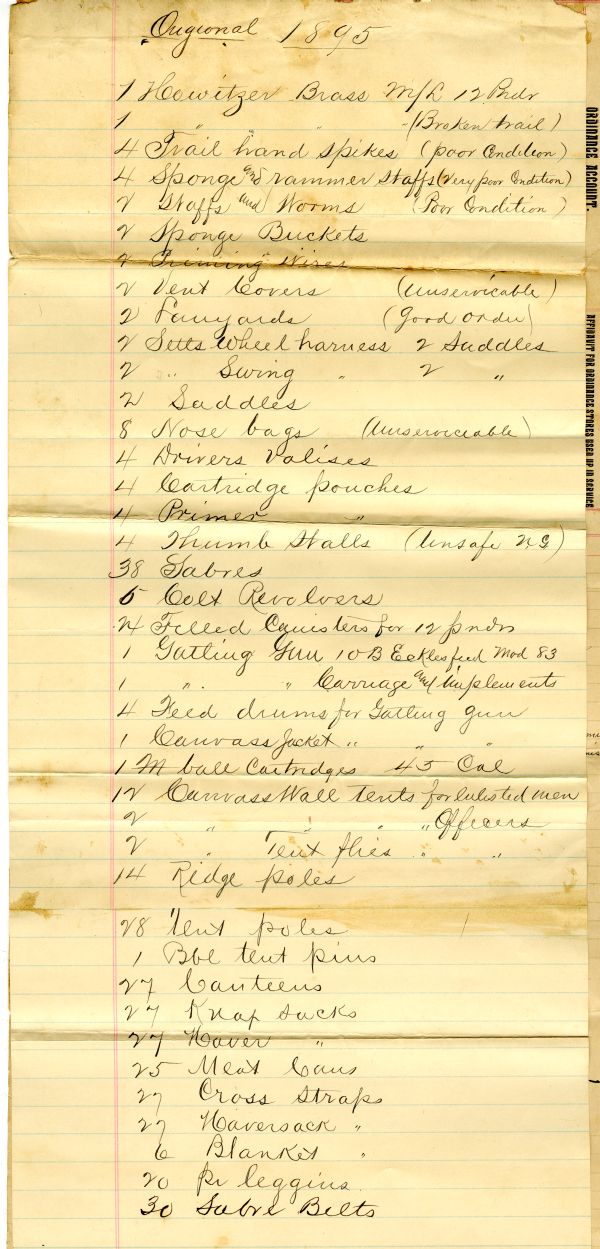 Origional 1895
1 Howitzer Brass M/L 12 Pndr
1 " " " (Broken trail)
4 Trail hand spikes (poor Condition)
4 Sponge and rammer staffs (Very poor Condition)
2 Staffs and Worms (Poor Condition)
2 Sponge Buckets
2 Priming Wires
2 Vent Covers (Unservicable)
2 Lanyards (Good order)
2 Setts Wheel harness 2 Saddles
2 " Swing " 2 "
2 Saddles
8 Nose bags (Unserviceable)
4 Drivers Valises
4 Cartridge pouches
4 Primer "
4 Thumb Stalls (Unsafe N G)
38 Sabres
5 Colt Revolvers
24 Filled Canisters for 12 pndr
1 Gatling Gun 10 B Mod 83
1 " " Carriage and Implements
4 Feed drums for Gatling gun
1 Canvass Jacket " " "
1 M ball Cartridges 45 Cal
12 Canvass Wall tents for Enlisted men
2 " " " " Officers
2 " Tent flies " "
14 Ridge poles
28 Tent poles
1 Bbl tent pins
27 Canteens
27 Knap sacks
27 Haver "
25 Meat Cans
27 Cross Straps
27 Haversack "
6 Blanket "
20 pr leggins
30 Sabre Belts
ORDNANCE ACCOUNT.
AFFIDAVIT FOR ORDNANCE STORES USED UP IN SERVICE